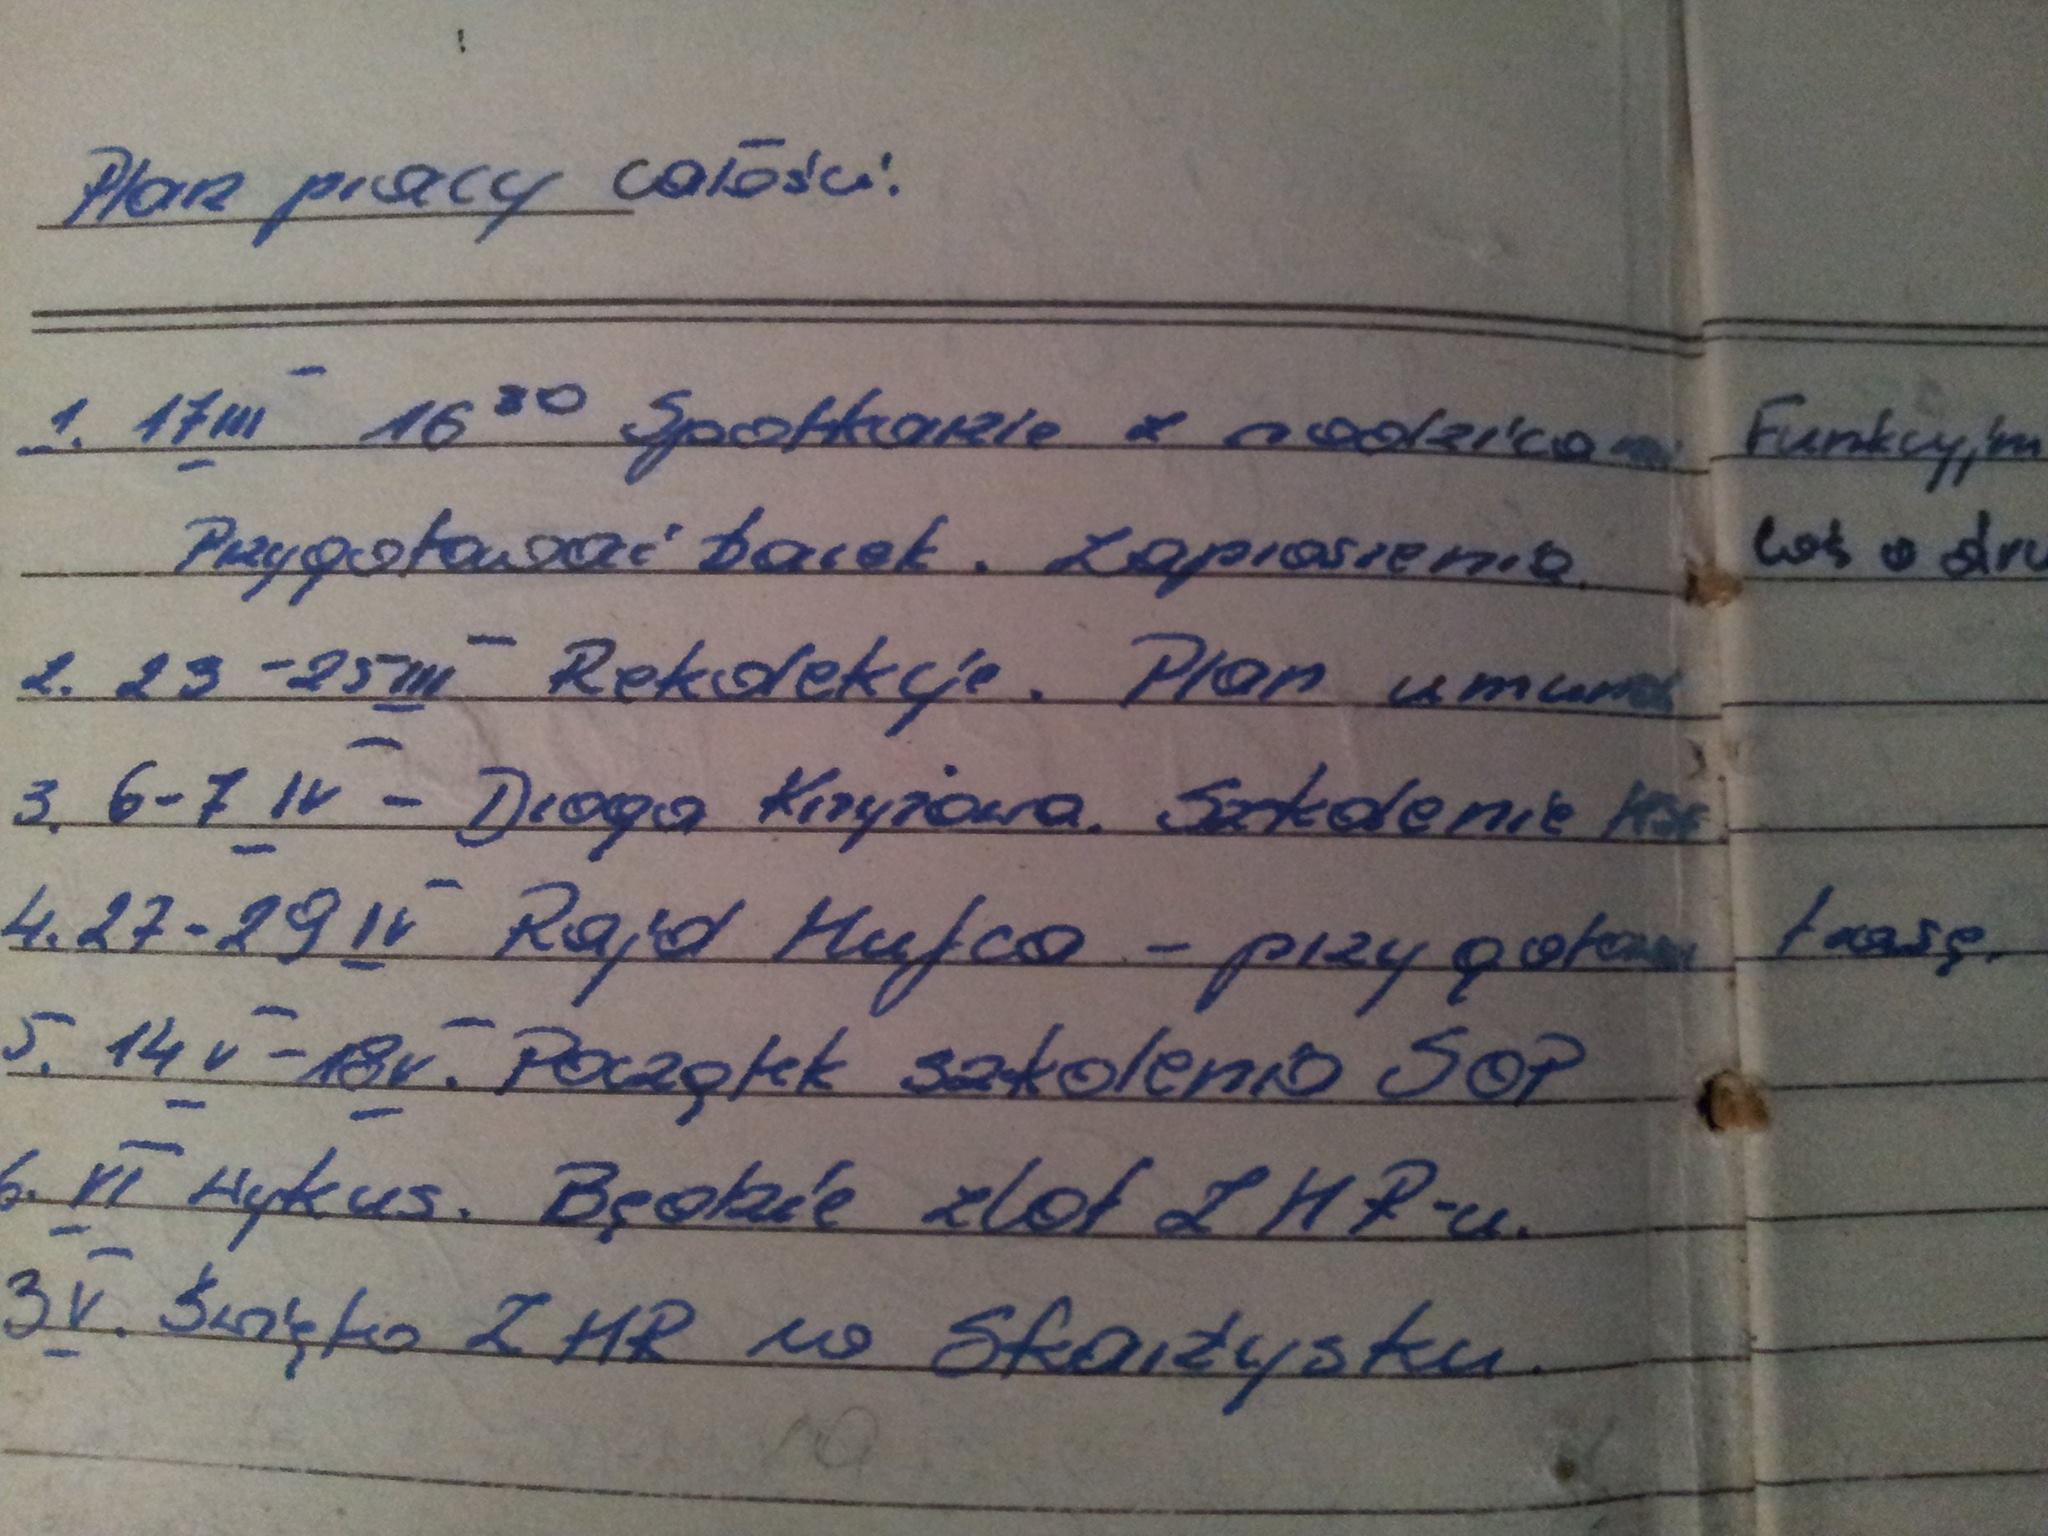 Plan pracy całości.
1. 17 III 16³⁰ Spotkanie z rodzicami Funkcyjni
Przygotować barek. Zaproszenia. Coś o dru
2. 23-25 III Rekolekcje. Plan umund
3. 6-7 IV - Droga Krzyżowa. Szkolenie
4. 27-29 IV Rajd Hufca - przygotować trasę.
5. 14 V - 18 V. Początek szkolenia SOP
6. VI Wykus. Będzie zlot ZHR-u.
3 V. Święto ZHR w Skarżysku.